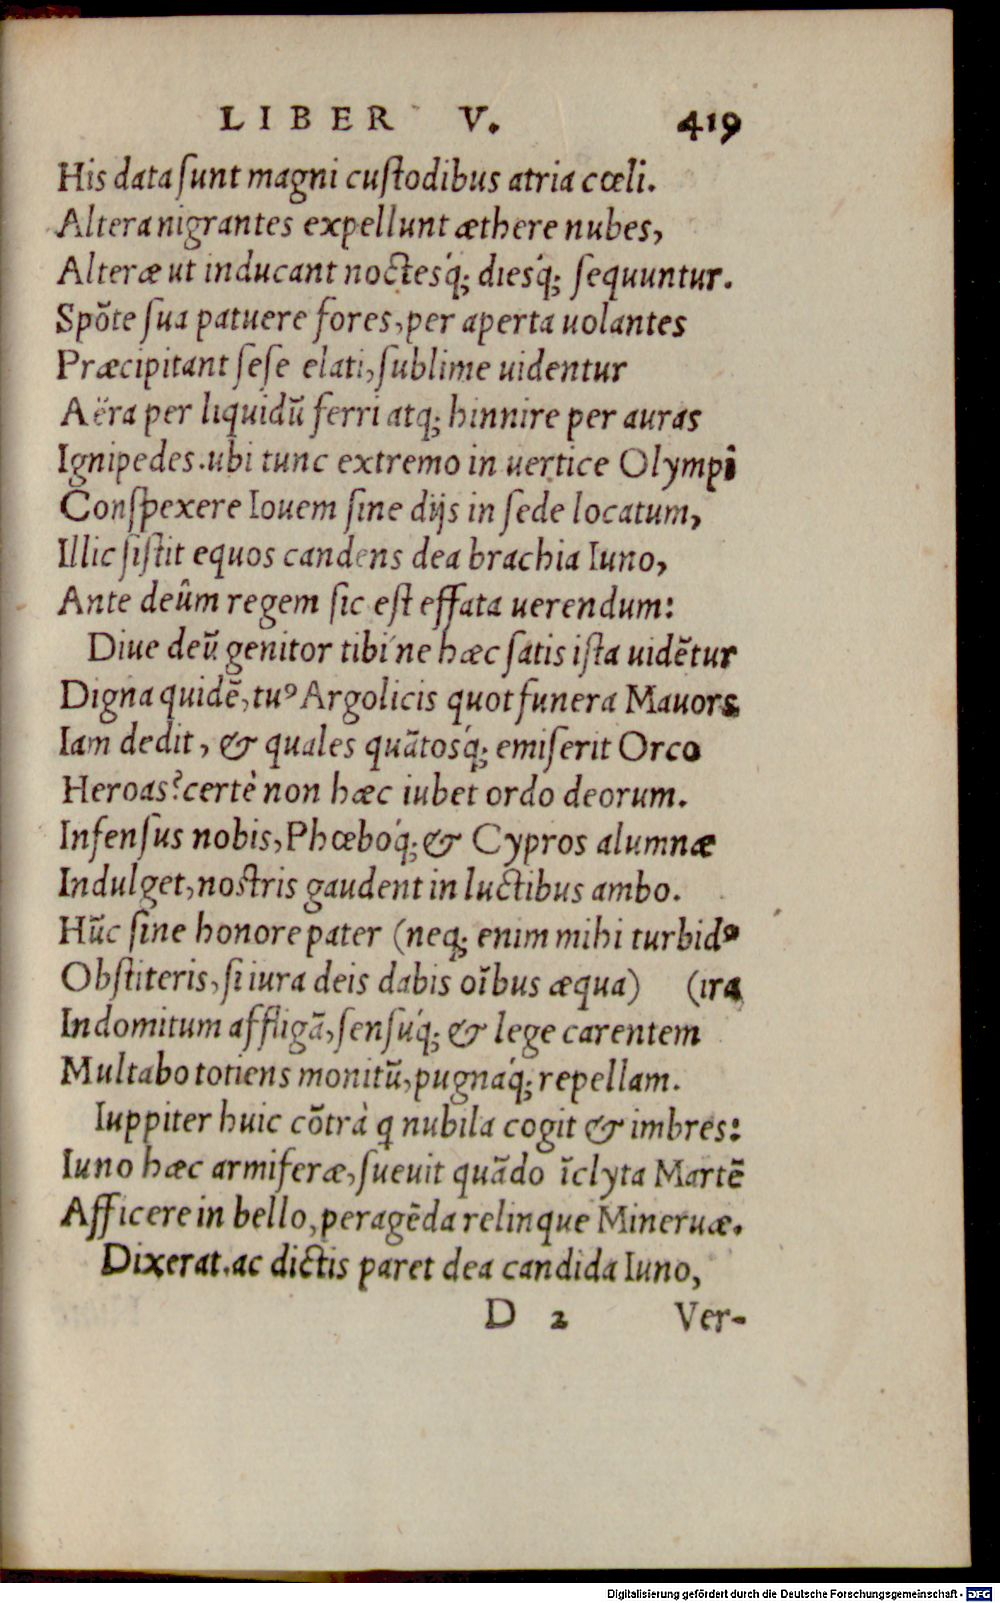 LIBER V. 419
His data ſunt magni cuſtodibus atria cœli.
Altera nigrantes expellunt æthere nubes,
Alteræ ut inducant noctesq́; diesq́; ſequuntur.
Spõte ſua patuere fores, per aperta uolantes
Præcipitant ſeſe elati, ſublime uidentur
Aëra per liquidũ ferri atq; hinnire per auras
Ignipedes. ubi tunc extremo in uertice Olympi
Conſpexere Iouem ſine dijs in ſede locatum,
Illic ſiſtit equos candens dea brachia Iuno,
Ante deûm regem ſic eſt effata uerendum:
Diue deũ genitor tibi ́ne hæc ſatis iſta uidẽtur
Digna quidẽ, tuꝰ Argolicis quot funera Mauors
Iam dedit, & quales quãtosq́; emiſerit Orco
Heroas? certè non hæc iubet ordo deorum.
Infenſus nobis, Phœboq́; & Cypros alumnæ
Indulget, noſtris gaudent in luctibus ambo.
Hũc ſine honore pater (neq; enim mihi turbidꝰ
Obſtiteris, ſi iura deis dabis oĩbus æqua) (ira
Indomitum affligã, ſenſuq́; & lege carentem
Multabo totiens monitũ, pugnaq́; repellam.
Iuppiter huic cõtrà q nubila cogit & imbres:
Iuno hæc armiferæ, ſueuit quãdo ĩclyta Martẽ
Afficere in bello, peragẽda relinque Mineruæ.
Dixerat. ac dictis paret dea candida Iuno,
D 2 Ver-
Digitalisierung gefördert durch die Deutsche Forschungsgemeinschaft - DFG